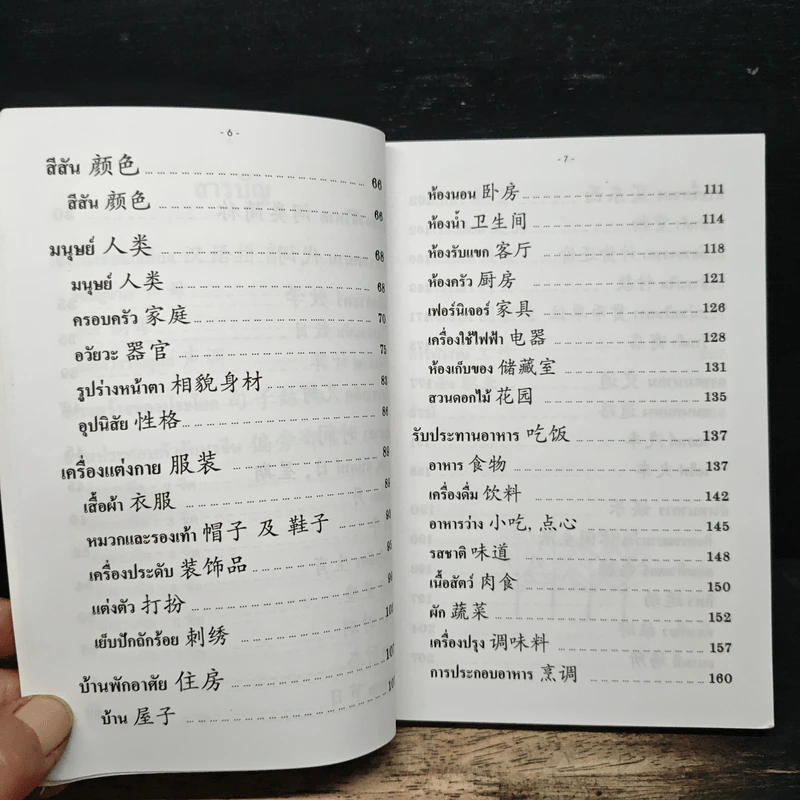 - 6 -
สีสัน 颜色 66
สีสัน 颜色 66
มนุษย์ 人类 68
มนุษย์ 人类 68
ครอบครัว 家庭 70
อวัยวะ 器官 75
รูปร่างหน้าตา 相貌身材 83
อุปนิสัย 性格 86
เครื่องแต่งกาย 服装
เสื้อผ้า 衣服
หมวกและรองเท้า 帽子 及 鞋子
เครื่องประดับ 装饰品
แต่งตัว 打扮
เย็บปักถักร้อย 刺绣
บ้านพักอาศัย 住房 107
บ้าน 屋子
- 7 -
ห้องนอน 卧房 111
ห้องน้ำ 卫生间 114
ห้องรับแขก 客厅 118
ห้องครัว 厨房 121
เฟอร์นิเจอร์ 家具 126
เครื่องใช้ไฟฟ้า 电器 128
ห้องเก็บของ 储藏室 131
สวนดอกไม้ 花园 135
รับประทานอาหาร 吃饭 137
อาหาร 食物 137
เครื่องดื่ม 饮料 142
อาหารว่าง 小吃, 点心 145
รสชาติ 味道 148
เนื้อสัตว์ 肉食 150
ผัก 蔬菜 152
เครื่องปรุง 调味料 157
การประกอบอาหาร 烹调 160